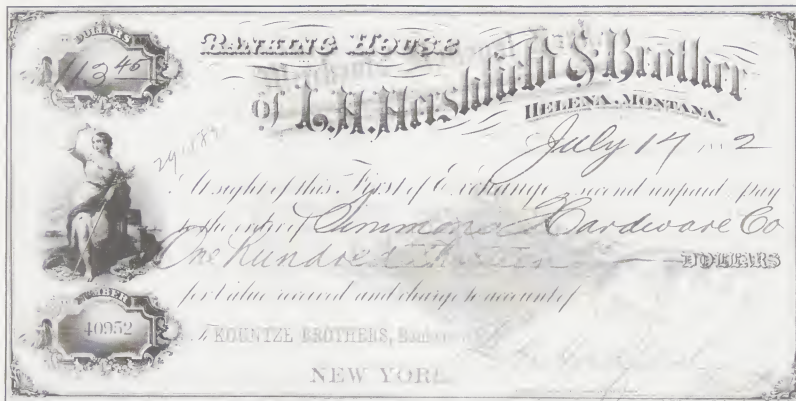 DOLLARS
$113 45
BANKING HOUSE
OF L. H. Hershfield & Brother
HELENA, MONTANA.
July 17 2
At sight of this First of Exchange second unpaid pay
to the order of Simmons Hardware Co
One Hundred Thirteen DOLLARS
for value received and charge to account of
NUMBER
40952
To KOUNTZE BROTHERS,
NEW YORK